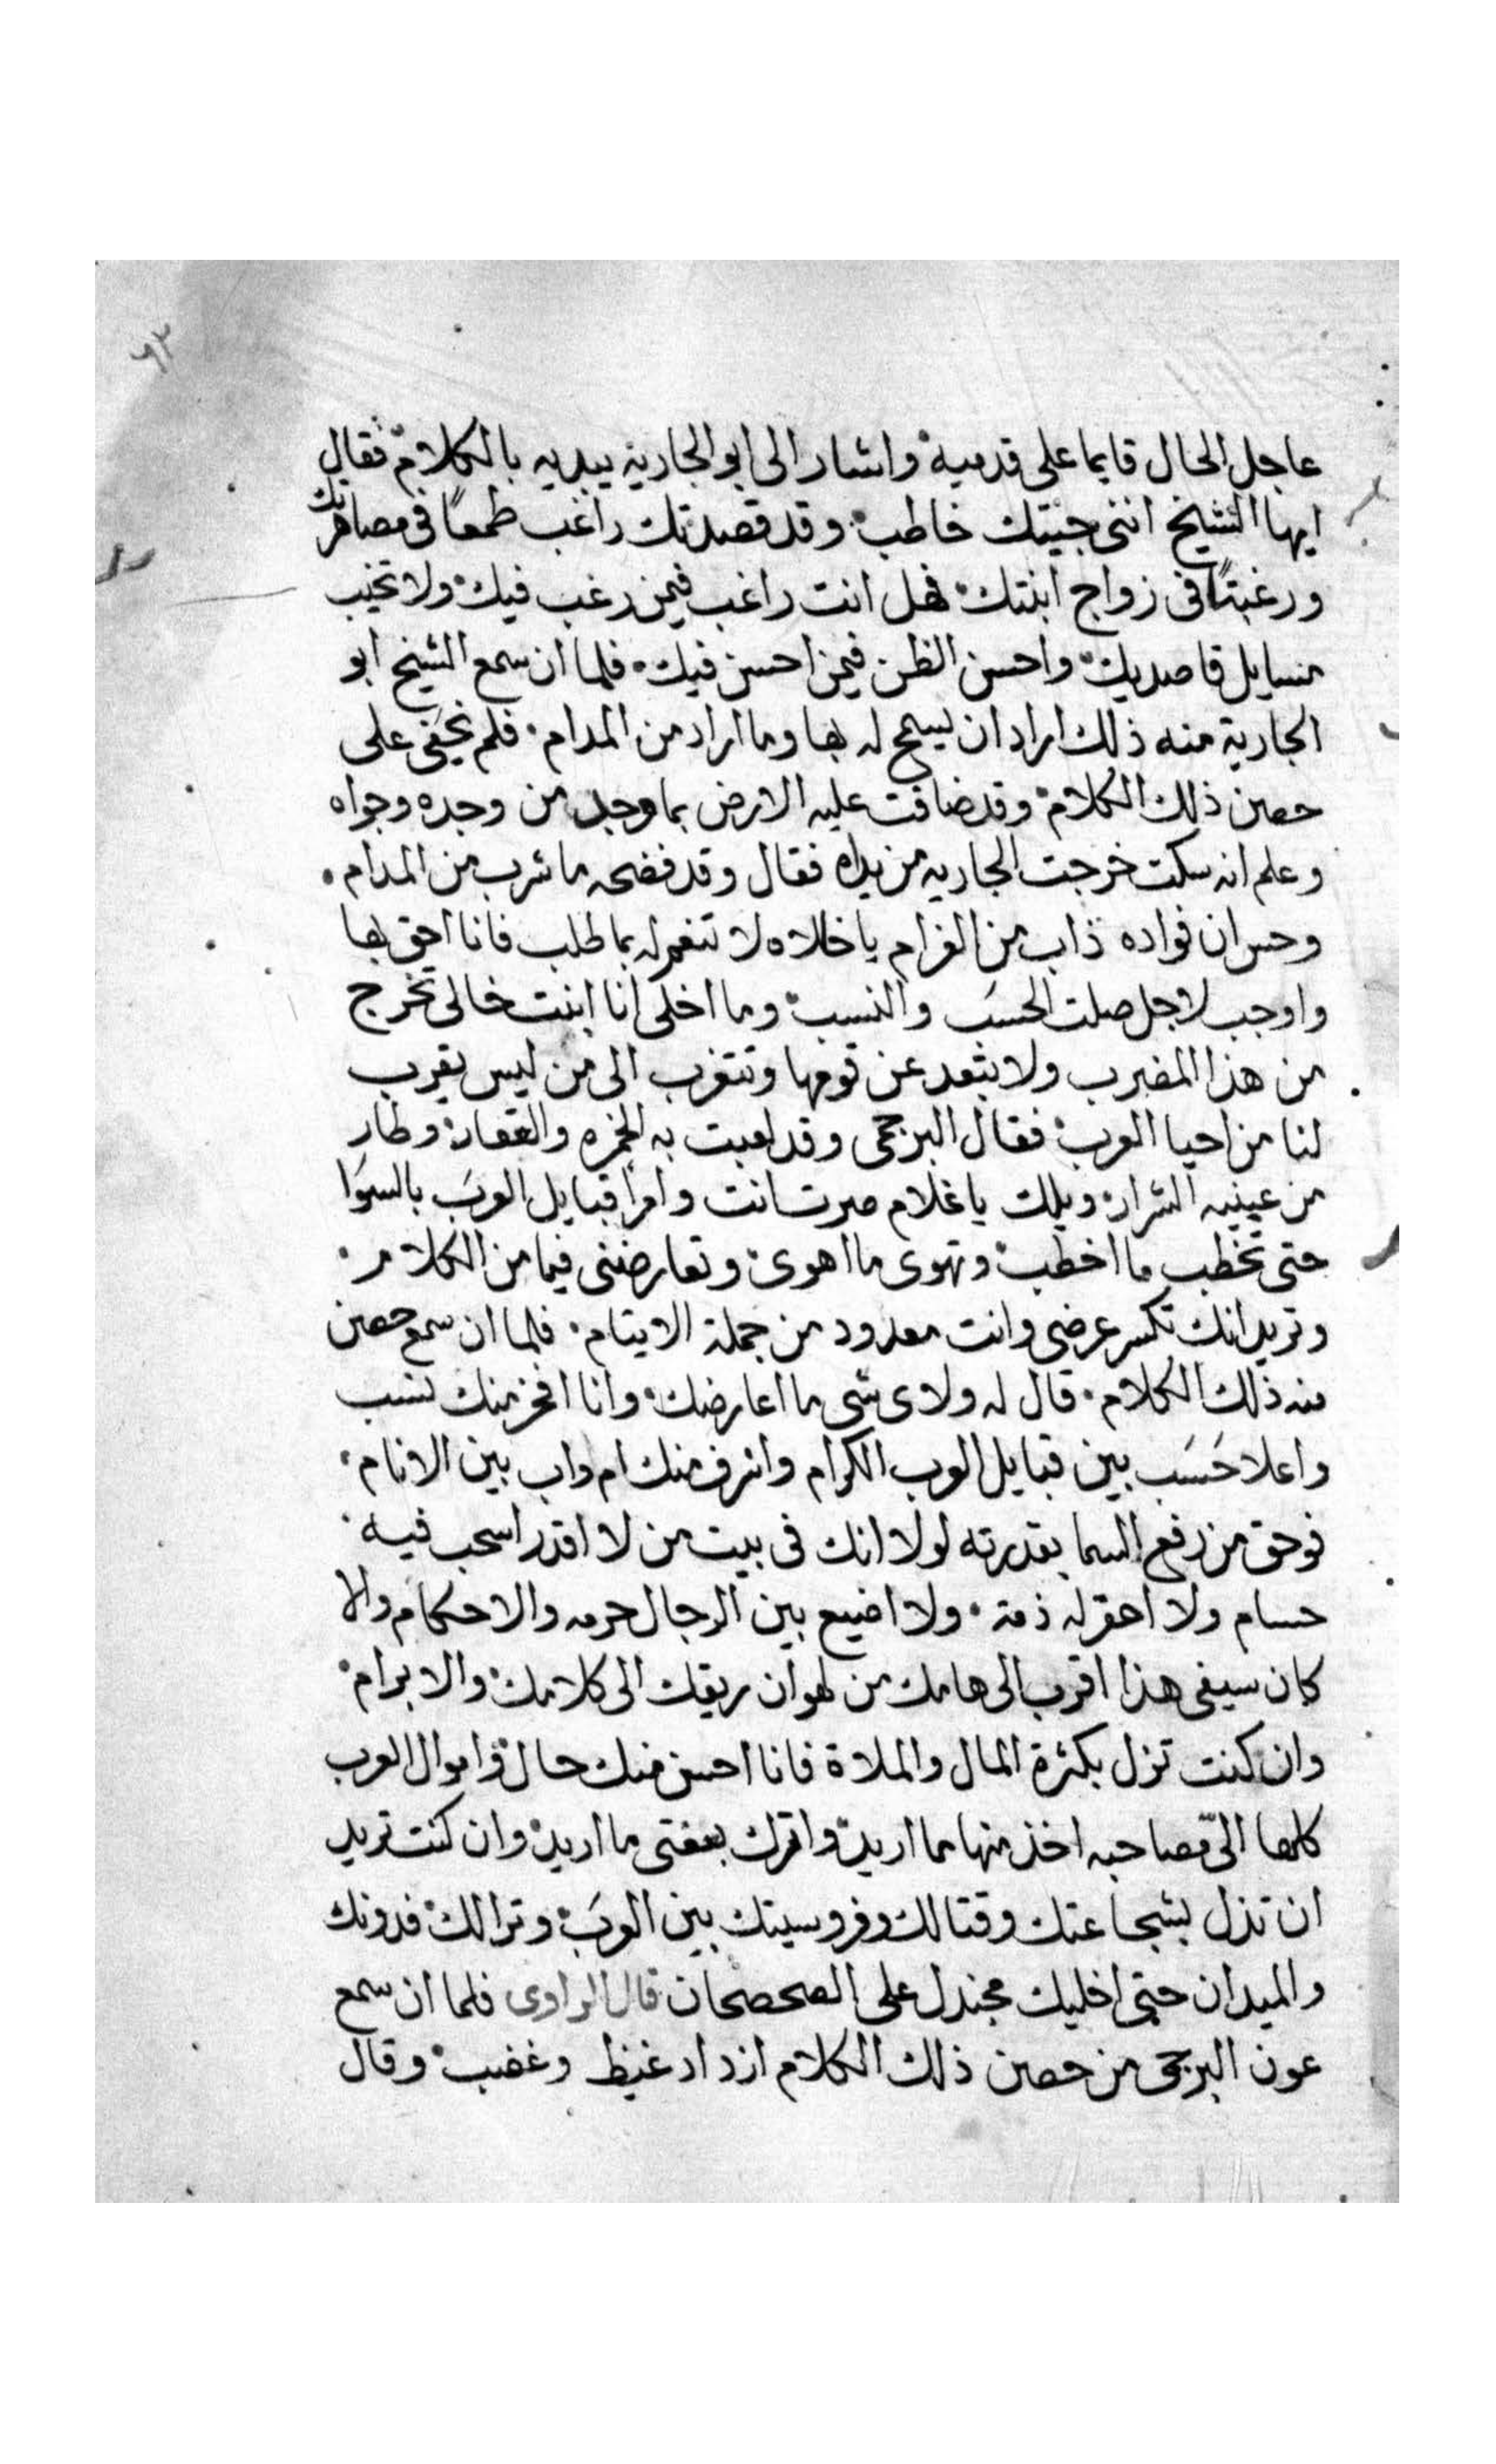 ٩٣
عاجل الحال قايما على قدميه واشار الى ابو الجارية بيديه بالكلام فقال
ايها الشيخ انني جيتك خاطب وقد قصدتك راغب طمعًا فى مصاهرتك
ورغبتًا فى زواج ابنتك فهل انت راغب فيمن رغب فيك ولا تخيب
مسايل قاصديك واحسن الظن فيمن احسن فيك فلما ان سمع الشيخ ابو
الجارية منه ذلك اراد ان يسمح له بها وما اراد من المدام فلم يخفى على
حصن ذلك الكلام وقد ضاقت عليه الارض بما وجد من وجده وجواه
وعلم انه سكت خرجت الجاريه من يداه فقال وقد فضحه ما شرب من المدام
وحس ان فواده ذاب من الغرام يا خالاه لا تنعم له بما طلب فانا احق بها
واوجب لاجل صلت الحسَب والنسب وما اخلى انا ابنت خالى تخرج
من هذا المضرب ولا تبعد عن قومها وتتغرب الى من ليس يقرب
لنا من احيا العرب فقال البرجمى وقد لعبت به الخمره والعقار وطار
من عينيه الشرار ويلك يا غلام صرت انت وامرا قبايل العرَب بالسوَا
حتى تخطب ما اخطب وتهوى ما اهوى وتعارضنى فيما من الكلام
وتريد انك تكسر عرضى وانت معدود من جملة الايتام فلما ان سمع حصن
منه ذلك الكلام قال له ولاى شى ما اعارضك وانا افخر منك نسب
واعلا حَسَب بين قبايل العرب الكرام واشرف منك ام واب بين الانام
فوحق من رفع السما بقدرته لولا انك فى بيت من لا اقدر اسحب فيه
حسام ولا احقر له ذمة ولا اضيع بين الرجال حرمه والاحكام والا
كان سيفى هذا اقرب الى هامك من لهوان ريقك الى كلامك والابرام
وان كنت تزل بكثرة المال والملاة فانا احسن منك حال واموال العرب
كلها الىّ مصاحبه اخذ منها مما اريد واترك بعفتى ما اريد وان كنت تريد
ان تذل بشجاعتك وقتالك وفروسيتك بين العرَب ونزالك فدونك
والميدان حتى اخليك مجندل على الصحصحان قال الراوى فلما ان سمع
عون البرجمى من حصن ذلك الكلام ازداد غيظ وغضب وقال